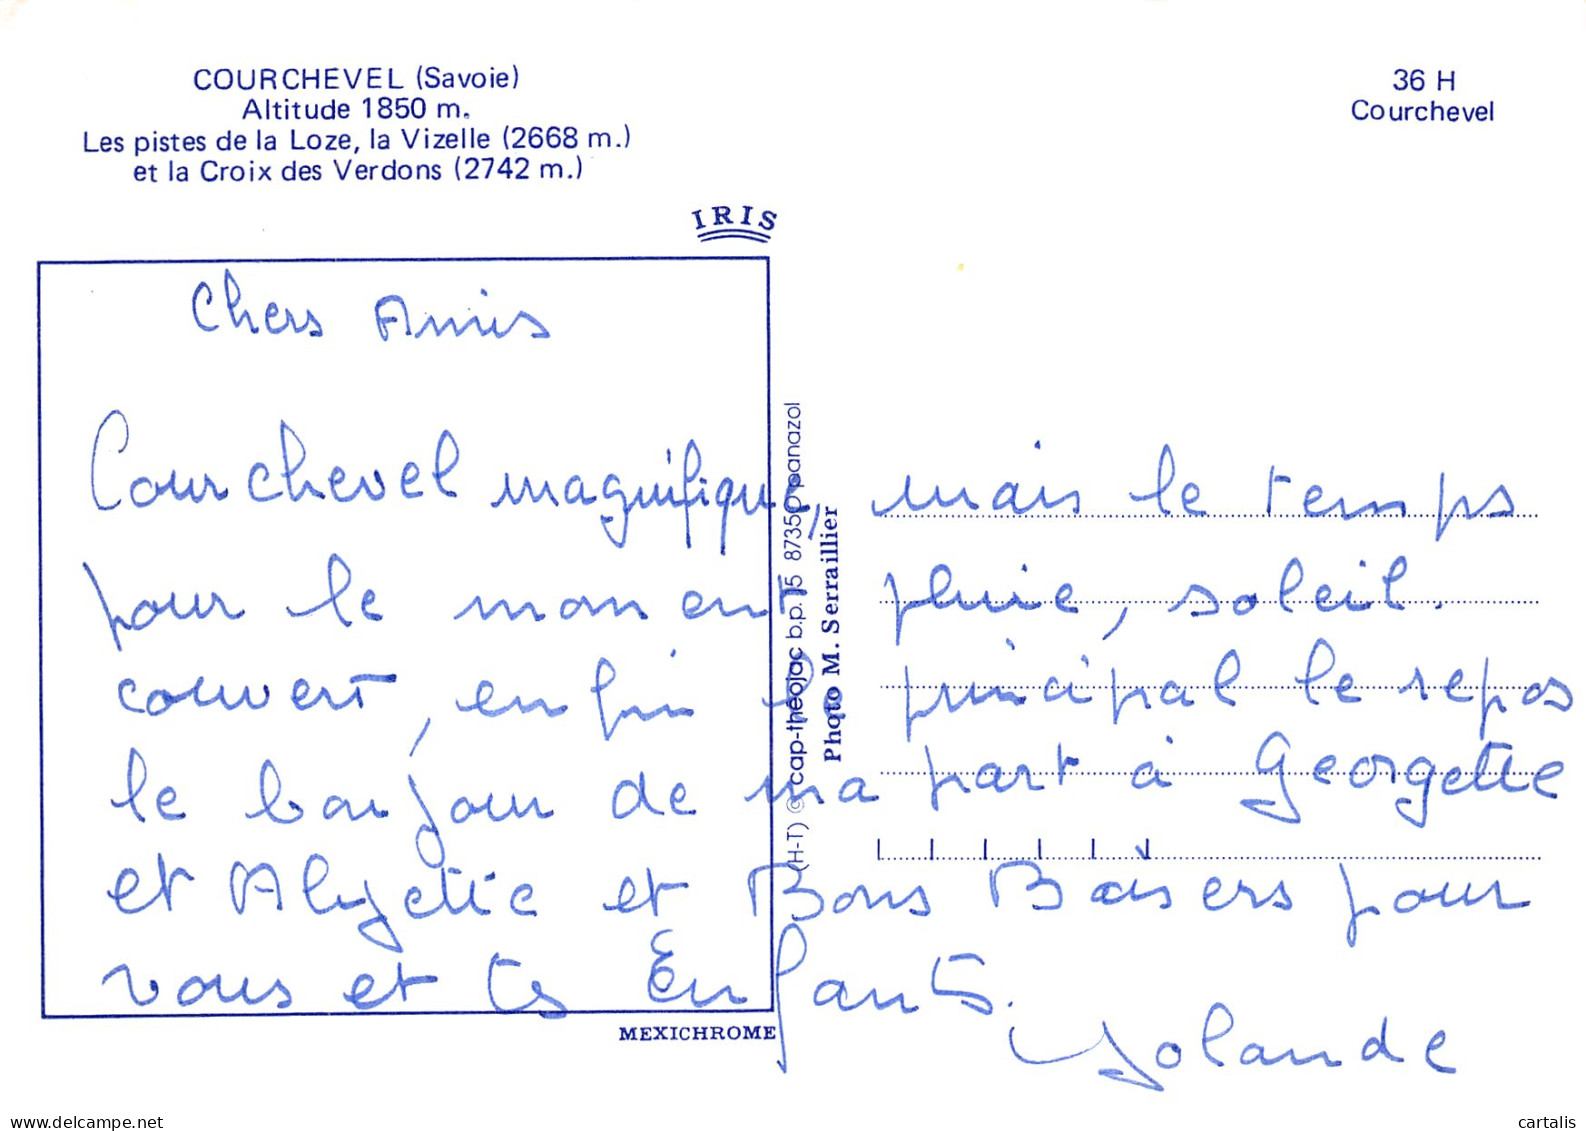 COURCHEVEL (Savoie)
Altitude 1850 m.
Les pistes de la Loze, la Vizelle (2668 m.)
et la Croix des Verdons (2742 m.)
36 H
Courchevel
IRIS
Chers Amis
Courchevel magnifique, mais le temps
pour le moment pluie, soleil.
couvert, enfin le principal le repos
le bonjour de ma part à Georgette
et Alyette et Bons Baisers pour
vous et ts Enfants.
Yolande
(H-T) © cap-théojac b.p. 15 87350 panazol
Photo M. Serraillier
MEXICHROME
www.delcampe.net
cartalis